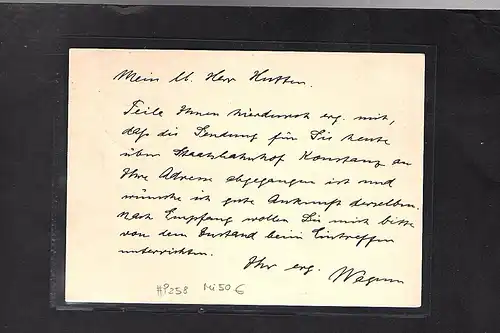 Mein lb. Herr Hutten.
Teile Ihnen hierdurch erg. mit,
daß die Sendung für Sie heute
über Staatsbahnhof Konstanz an
Ihre Adresse abgegangen ist und
wünsche ich gute Ankunft derselben.
Nach Empfang wollen Sie mich bitte
von dem Zustand beim Eintreffen
unterrichten.
Ihr erg. Wagner
#P258 Mi 50 €